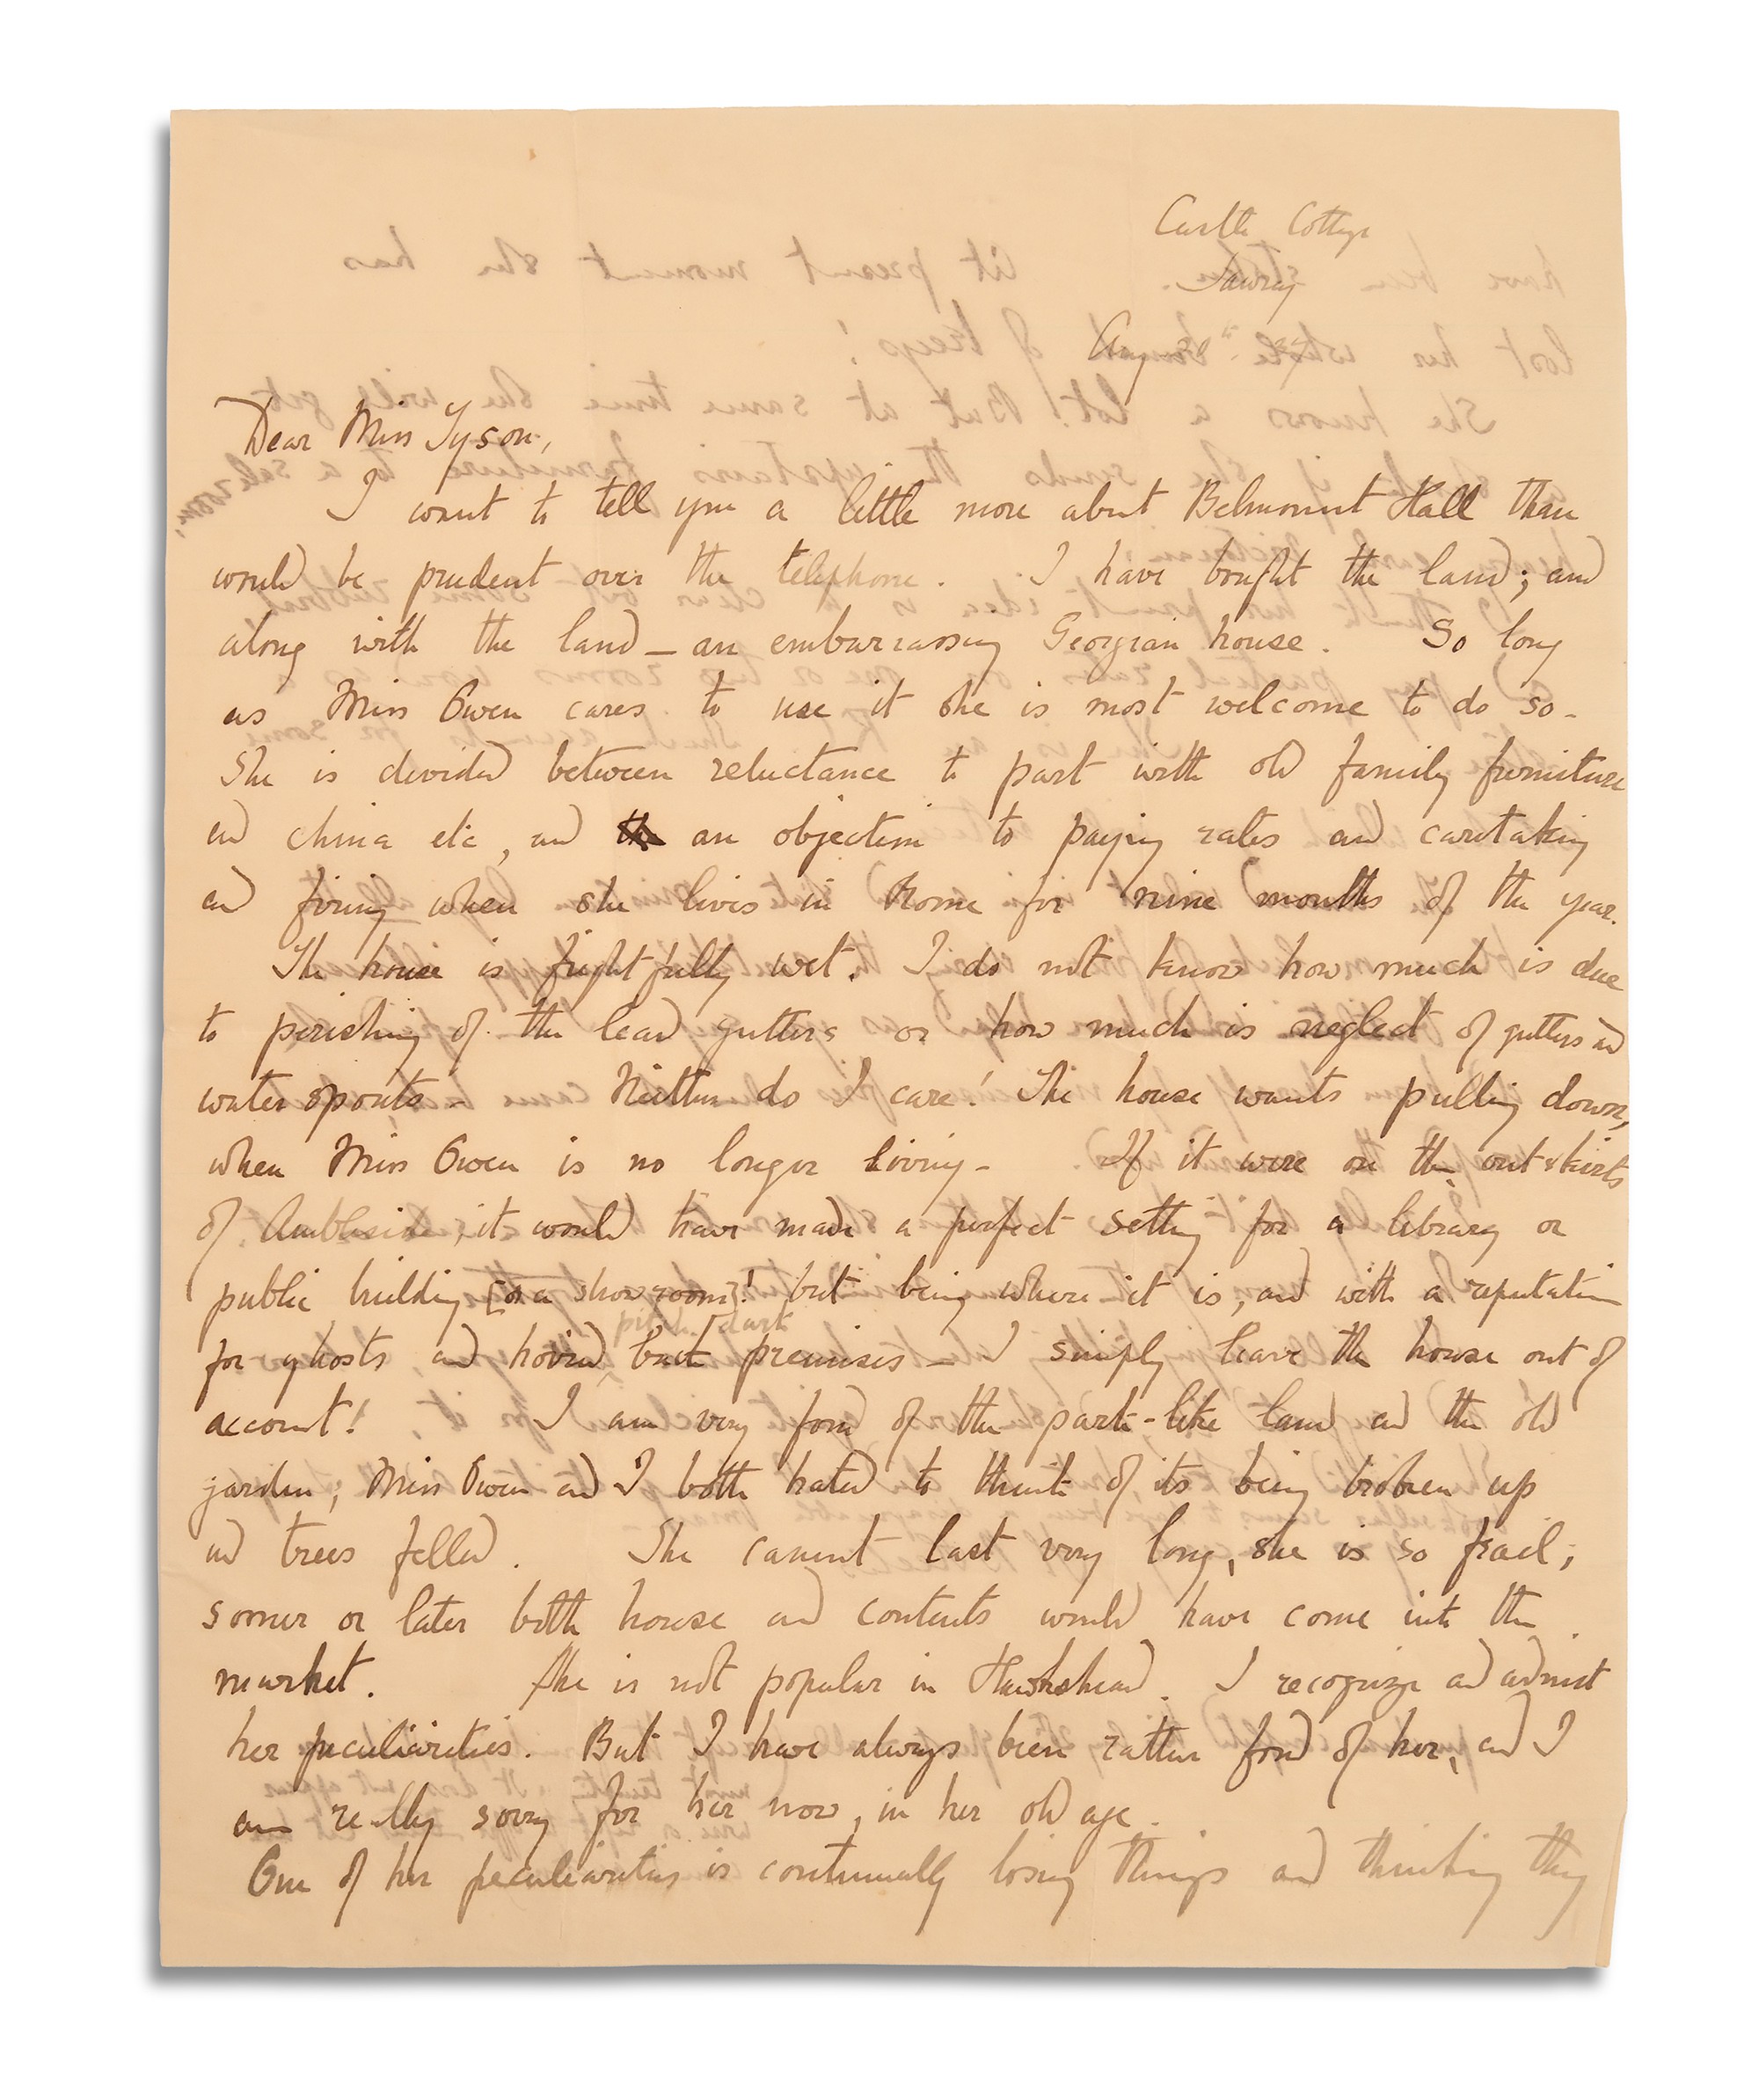 Castle Cottage
Sawrey
Aug
Dear Miss Tyson,
I want to tell you a little more about Belmount Hall than
would be prudent over the telephone. I have bought the land; and
along with the land — an embarrassing Georgian house. So long
as Miss Owen cares to use it she is most welcome to do so -
She is divided between reluctance to part with old family furniture
and china etc, and an objection to paying rates and caretaking
and firing when she lives in Rome for nine months of the year.
The house is frightfully wet. I do not know how much is due
to perishing of the lead gutters or how much is neglect of gutters and
water spouts - Neither do I care! The house wants pulling down,
when Miss Owen is no longer living - If it were on the outskirts
of Ambleside, it would have made a perfect setting for a library or
public building [or a show room]! but being where it is, and with a reputation
pitch dark
for ghosts, and horrid back premises — I simply leave the house out of
account! I am very fond of the park-like land and the old
garden; Miss Owen and I both hated to think of its being broken up
and trees felled. She cannot last very long, she is so frail;
sooner or later both house and contents would have come into the
market. She is not popular in Hawkshead. I recognize and admit
her peculiarities. But I have always been rather fond of her, and I
am really sorry for her now, in her old age.
One of her peculiarities is continually losing things and thinking they